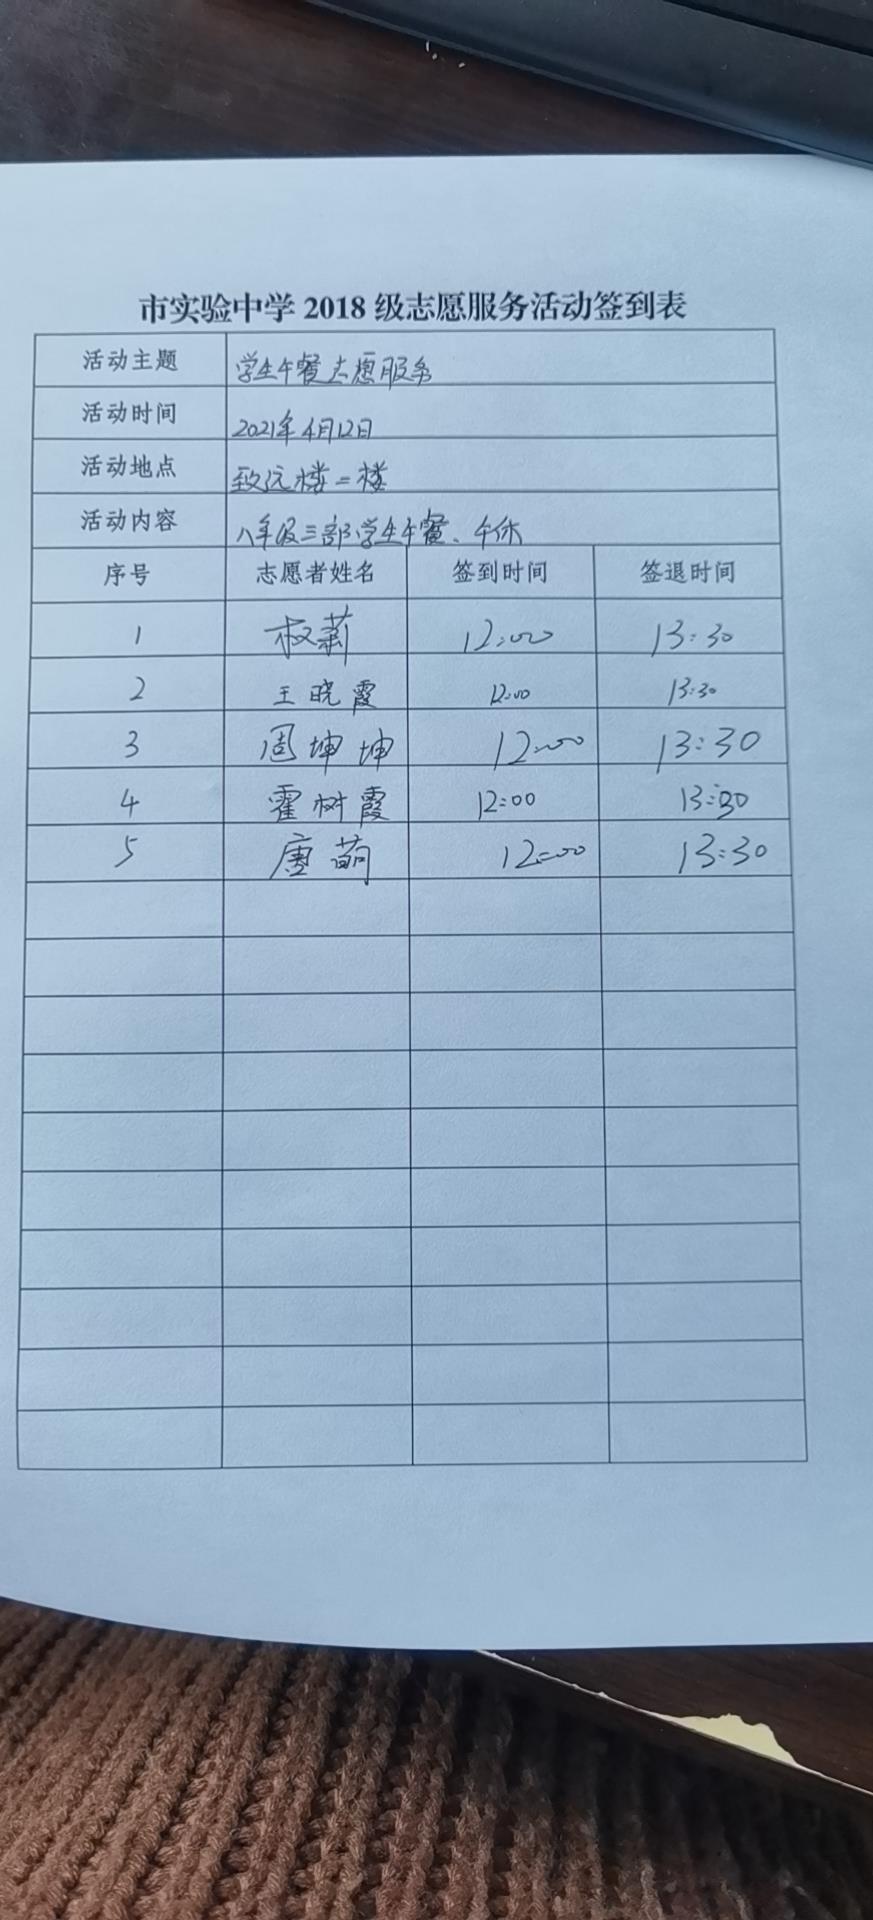 市实验中学2018级志愿服务活动签到表
活动主题 学生午餐志愿服务
活动时间 2021年4月12日
活动地点 致远楼二楼
活动内容 八年级三部学生午餐、午休
序号 志愿者姓名 签到时间 签退时间
1 权莉 12:00 13:30
2 王晓霞 12:00 13:30
3 周坤坤 12:00 13:30
4 霍树霞 12:00 13:30
5 唐萌 12:00 13:30